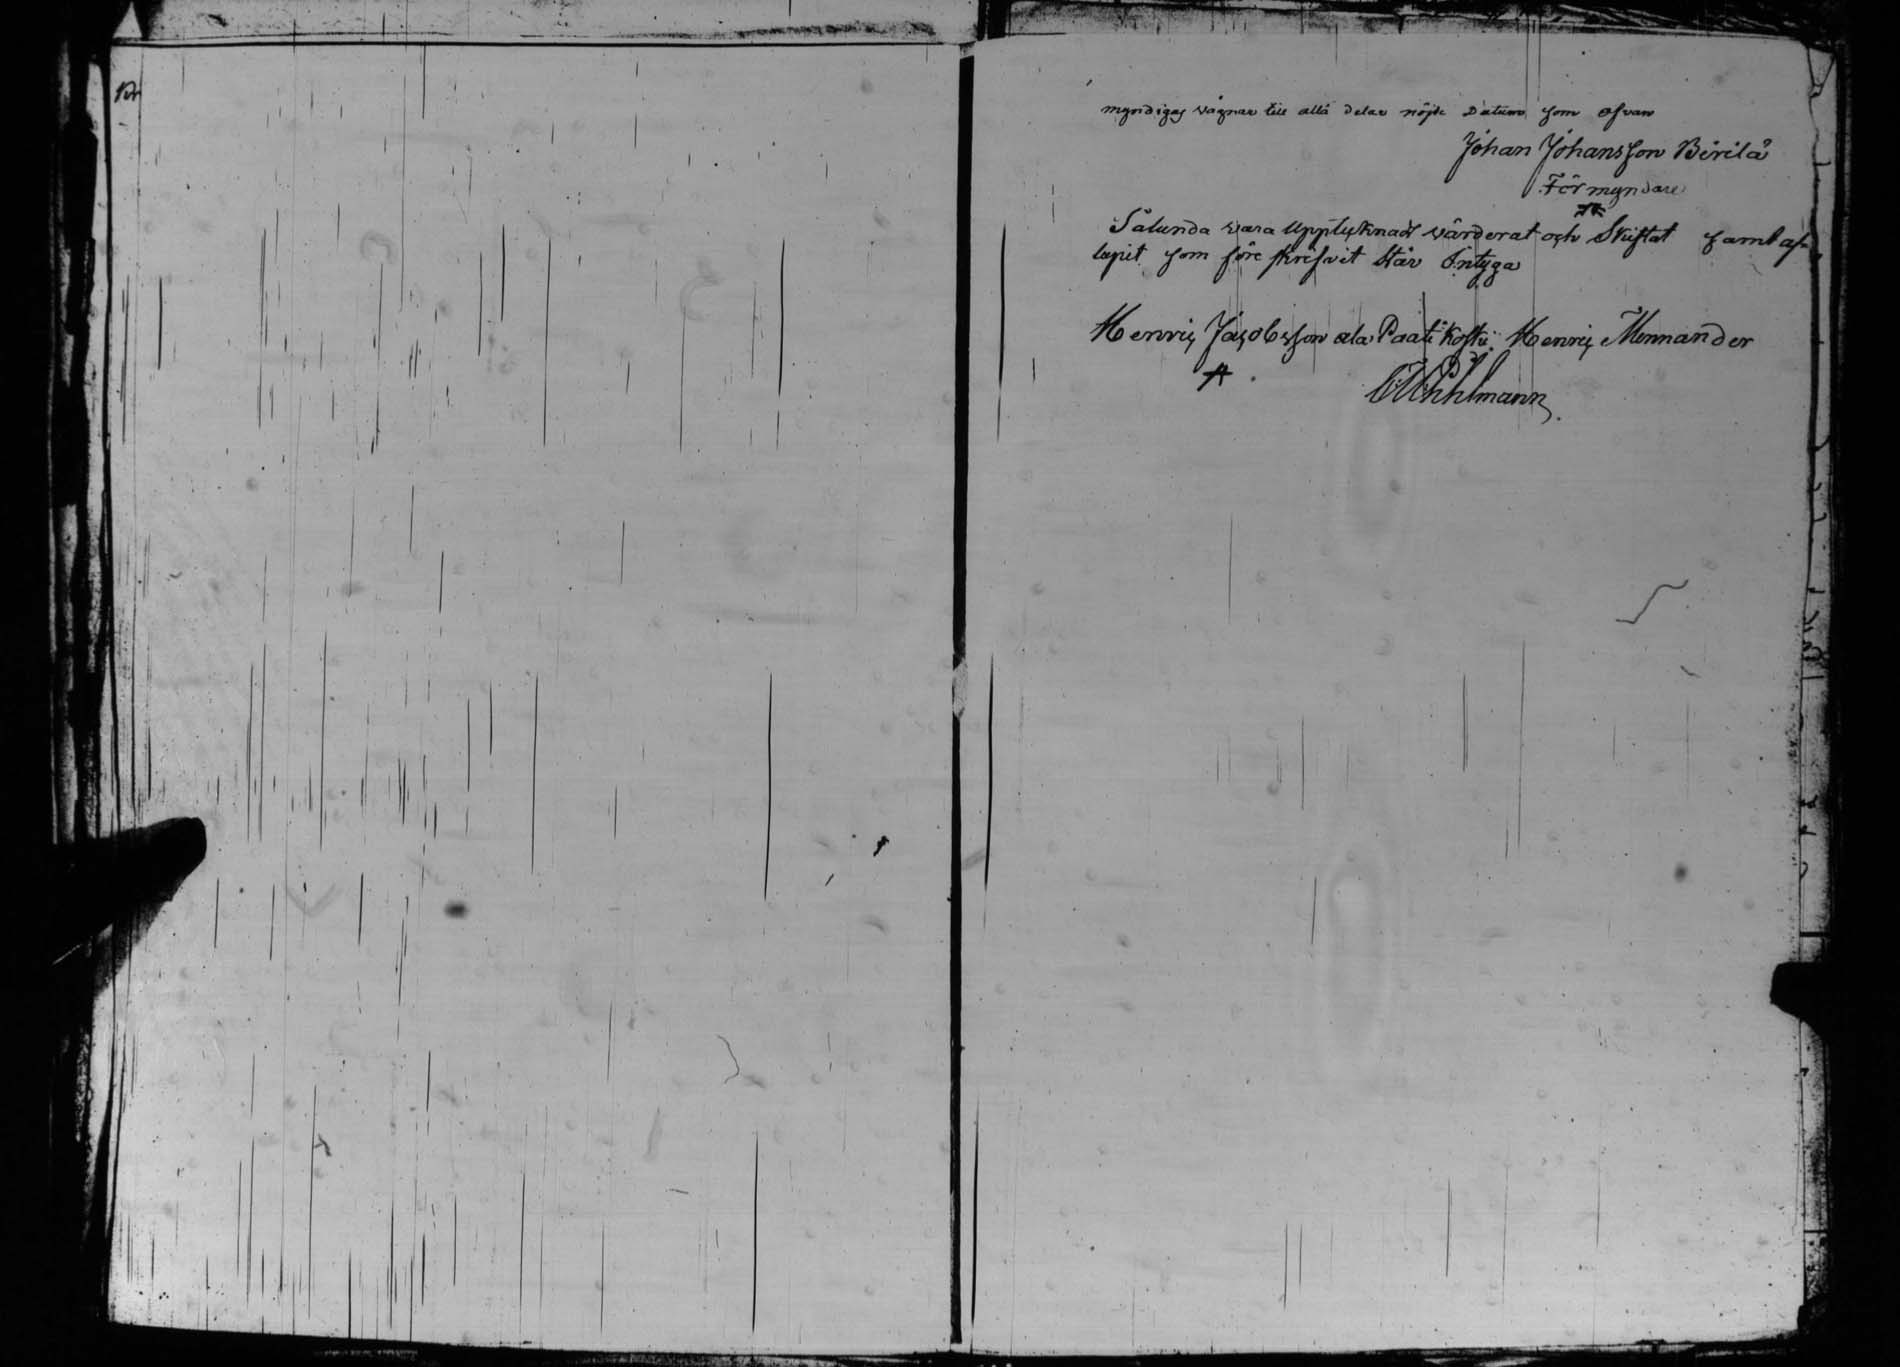 myndigas vägnar till alla delar nöjde Datum som ofvan
Johan Johansson Birilä
Förmyndare
Sålunda vara Upptecknadt värderat och Skiftat samt af-
lupit som före skrifvit står Intyga
Henric Jacobsson ala Paatikoski. Henric Mennander